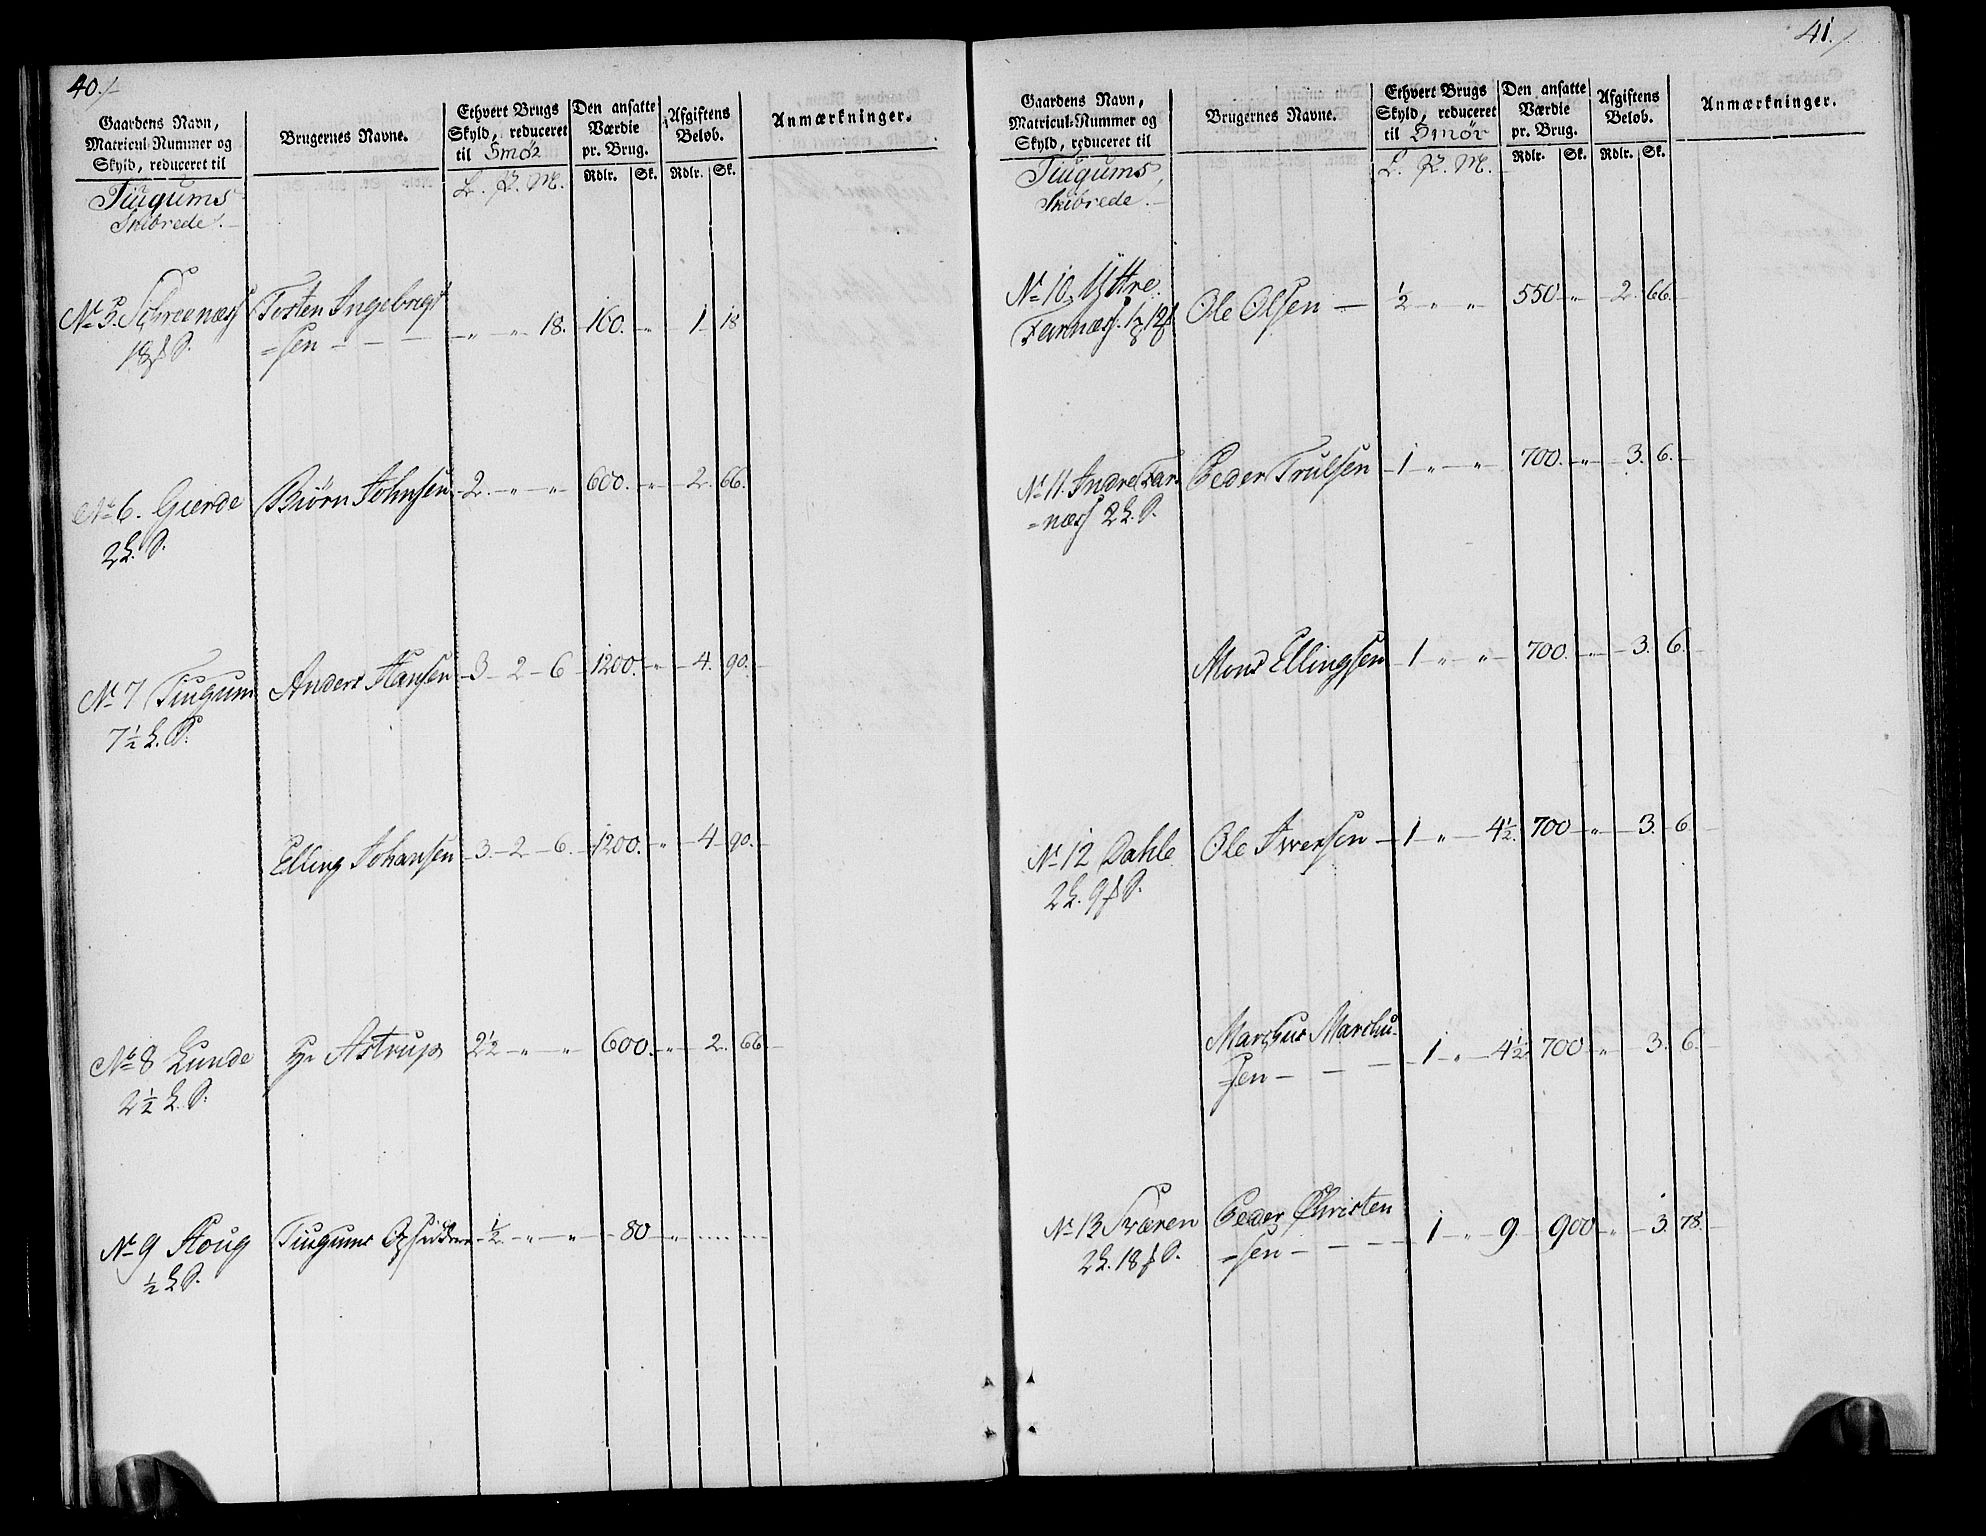 40./
Gaardens Navn,
Matricul-Nummer og
Skyld, reduceret til
Brugernes Navne.
Ethvert Brugs
Skyld, reduceret
til Smør
Den ansatte
Værdie
pr. Brug.
Afgiftens
Beløb.
Anmærkninger.
Rdlr. Sk. Rdlr. Sk.
L. P. M.
Tiugums
Skibrede.
Tosten Ingebrigt
No 5. 18. 160. „ 1 18
=sen
No 6. Gierde Biörn Johnsen 2. „ „ 600. „ 2. 66.
2 L. S.
No 7 Tiugum Anders Hansen 3 2 6 1200. „ 4. 90.
7½ L. S.
Elling Johansen 3. 2 6. 1200. „ 4 90.
No 8 Lunde Hr Astrup 2½ „ „ 600. „ 2. 66.
2½ L. S.
No 9 Houg Tiugums Opsiddere ½ „ „ 80 „
½ L S.
41./
Gaardens Navn,
Matricul-Nummer og
Skyld, reduceret til
Brugernes Navne.
Ethvert Brugs
Skyld, reduceret
til Smør
Den ansatte
Værdie
pr. Brug.
Afgiftens
Beløb.
Anmærkninger.
Rdlr. Sk. Rdlr. Sk.
L. P. M.
Tiugums
Skibrede.
No 10. Yttre Ole Olsen ½ „ „ 550 „ 2. 66.
No 11. Indre Far Peder Trulsen 1 „ „ 700. „ 3. 6.
=næss 2 L. S.
Mons Ellingsen 1 „ „ 700. „ 3. 6.
No 12 Dahle Ole Iversen 1 „ 4½ 700 „ 3. 6.
2 L. 9 S.
Marchus Marchu
=sen 1 „ 4½ 700 „ 3. 6.
No 13 Sværen Peder Christen
2 L. 18 S. =sen 1 „ 9. 900 „ 3. 78.